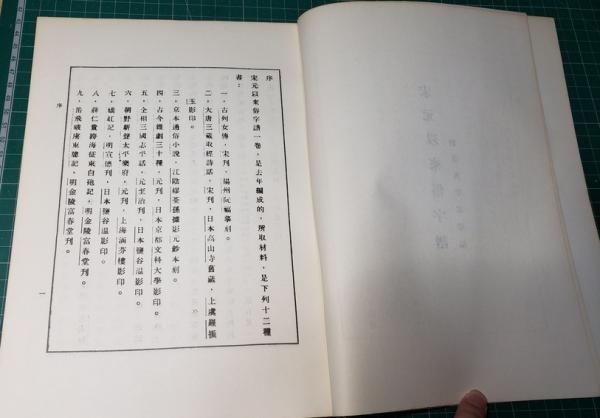 序
宋元以來俗字譜一卷，是去年編成的，所取材料，是下列十二種
書：
一．古列女傳，宋刊，揚州阮福摹刻。
二．大唐三藏取經詩話，宋刊，日本高山寺舊藏，上虞羅振
玉影印。
三．京本通俗小說，江陰繆荃孫據影元鈔本刻。
四．古今雜劇三十種，元刊，日本京都文科大學影印。
五．全相三國志平話，元至治刊，日本鹽谷溫影印。
六．朝野新聲太平樂府，元刊，上海涵芬樓影印。
七．嬌紅記，明宣德刊，日本鹽谷溫影印。
八．薛仁貴跨海征東白袍記，明金陵富春堂刊。
九．岳飛破虜東牕記，明金陵富春堂刊。
序
一
宋元以來俗字譜